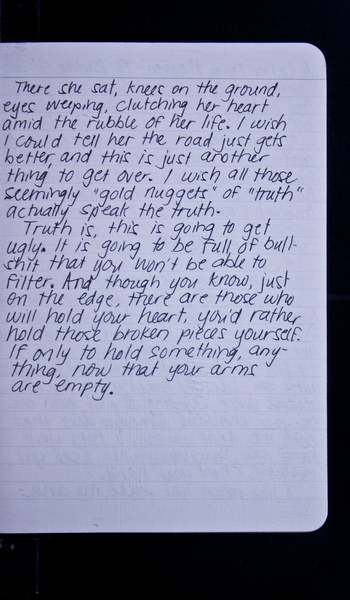 There she sat, knees on the ground,
eyes weeping, clutching her heart
amid the rubble of her life. I wish
I could tell her the road just gets
better, and this is just another
thing to get over. I wish all those
seemingly "gold nuggets" of "truth"
actually speak the truth.
Truth is, this is going to get
ugly. It is going to be full of bull-
shit that you won't be able to
filter. And though you know, just
on the edge, there are those who
will hold your heart, you'd rather
hold those broken pieces yourself.
If only to hold something, any-
thing, now that your arms
are empty.